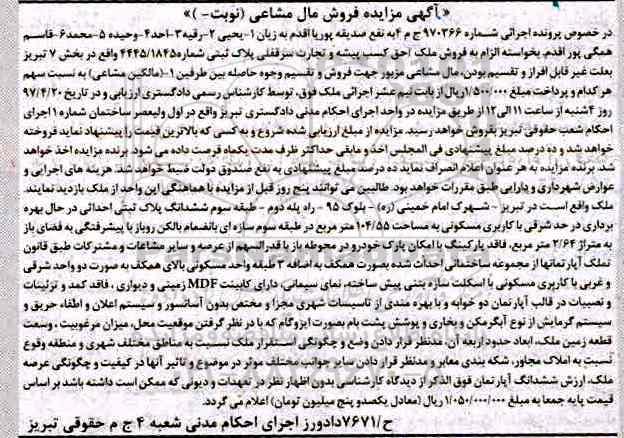 «آگهی مزایده فروش مال مشاعی (نوبت- )»
در خصوص پرونده اجرائی شماره ۹۷۰۲۶۶ ج م ۴ به نفع صدیقه پوریا اقدم به زیان ۱-یحیی ۲-رقیه ۳-احد ۴-وحیده ۵-محمد ۶-قاسم
همگی پور اقدم، بخواسته الزام به فروش ملک (حق کسب پیشه و تجارت سرقفلی پلاک ثبتی شماره ۴۴۴۵/۱۸۴۵ واقع در بخش ۷ تبریز
بعلت غیر قابل افراز و تقسیم بودن، مال مشاعی مزبور جهت فروش و تقسیم وجوه حاصله بین طرفین ۱-(مالکین مشاعی) به نسبت سهم
هر کدام و پرداخت مبلغ ۱/۵۰۰/۰۰۰ریال از بابت نیم عشر اجرائی ملک فوق، توسط کارشناس رسمی دادگستری ارزیابی و در تاریخ ۹۷/۴/۲۰
روز ۴شنبه از ساعت ۱۱ الی ۱۲ از طریق مزایده در واحد اجرای احکام مدنی دادگستری تبریز واقع در اول ولیعصر ساختمان شماره ۱ اجرای
احکام شعب حقوقی تبریز بفروش خواهد رسید. مزایده از مبلغ ارزیابی شده شروع و به کسی که بالاترین قیمت را پیشنهاد نماید فروخته
خواهد شد و ده درصد مبلغ پیشنهادی فی المجلس اخذ و مابقی حداکثر ظرف مدت یکماه فرصت داده می شود. برنده مزایده اخذ خواهد
شد. برنده مزایده به هر عنوان اعلام انصراف نماید ده درصد مبلغ پیشنهادی به نفع صندوق دولت ضبط خواهد شد. هزینه های اجرایی و
عوارض شهرداری و دارایی طبق مقررات خواهد بود. طالبین می توانند پنج روز قبل از مزایده با هماهنگی این واحد از ملک بازدید نمایند.
ملک واقع است در تبریز - شهرک امام خمینی (ره) - بلوک ۹۵ - راه پله دوم - طبقه سوم ششدانگ پلاک ثبتی احداثی در حال بهره
برداری در حد شرقی با کاربری مسکونی به مساحت ۱۰۴/۵۵ متر مربع در طبقه سوم سازه ای بانضمام بالکن روباز با پیشرفتگی به فضای باز
به متراژ ۲/۶۴ متر مربع، فاقد پارکینگ با امکان پارک خودرو در محوطه باز با قدرالسهم از عرصه و سایر مشاعات و مشترکات طبق قانون
تملک آپارتمانها از مجموعه ساختمانی احداث شده بصورت همکف به اضافه ۳ طبقه واحد مسکونی بالای همکف به صورت دو واحد شرقی
و غربی با کاربری مسکونی با اسکلت سازه بتنی پیش ساخته، نمای سیمانی، دارای کابینت MDF زمینی و دیواری، فاقد کمد و تزئینات
و نصبیات در قالب آپارتمان دو خوابه و با بهره مندی از تاسیسات شهری مجزا و مختص بدون آسانسور و سیستم اعلان و اطفاء حریق و
سیستم گرمایش از نوع آبگرمکن و بخاری و پوشش پشت بام بصورت ایزوگام که با در نظر گرفتن موقعیت محل، میزان مرغوبیت، وسعت
قطعه زمین ملک، ابعاد حدود اربعه آن، مدنظر قرار دادن وضع و چگونگی استقرار ملک نسبت به مناطق مختلف شهری و منطقه وقوع
نسبت به املاک مجاور، شبکه بندی معابر و مدنظر قرار دادن سایر جوانب مختلف موثر در موضوع و تاثیر آنها در کیفیت و چگونگی عرصه
ملک، ارزش ششدانگ آپارتمان فوق الذکر از دیدگاه کارشناسی بدون اظهار نظر در تعهدات و دیونی که ممکن است داشته باشد بر اساس
قیمت پایه جمعا به مبلغ ۱/۰۵۰/۰۰۰/۰۰۰ ریال (معادل یکصدو پنج میلیون تومان) اعلام می گردد.
ح/۷۶۷۱ دادورز اجرای احکام مدنی شعبه ۴ ج م حقوقی تبریز